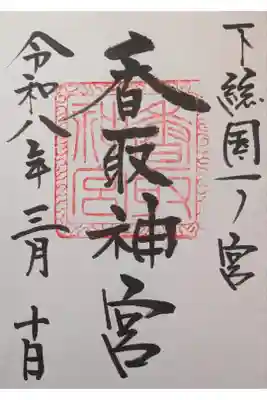 下総国一ノ宮
香取神宮
令和八年三月十日